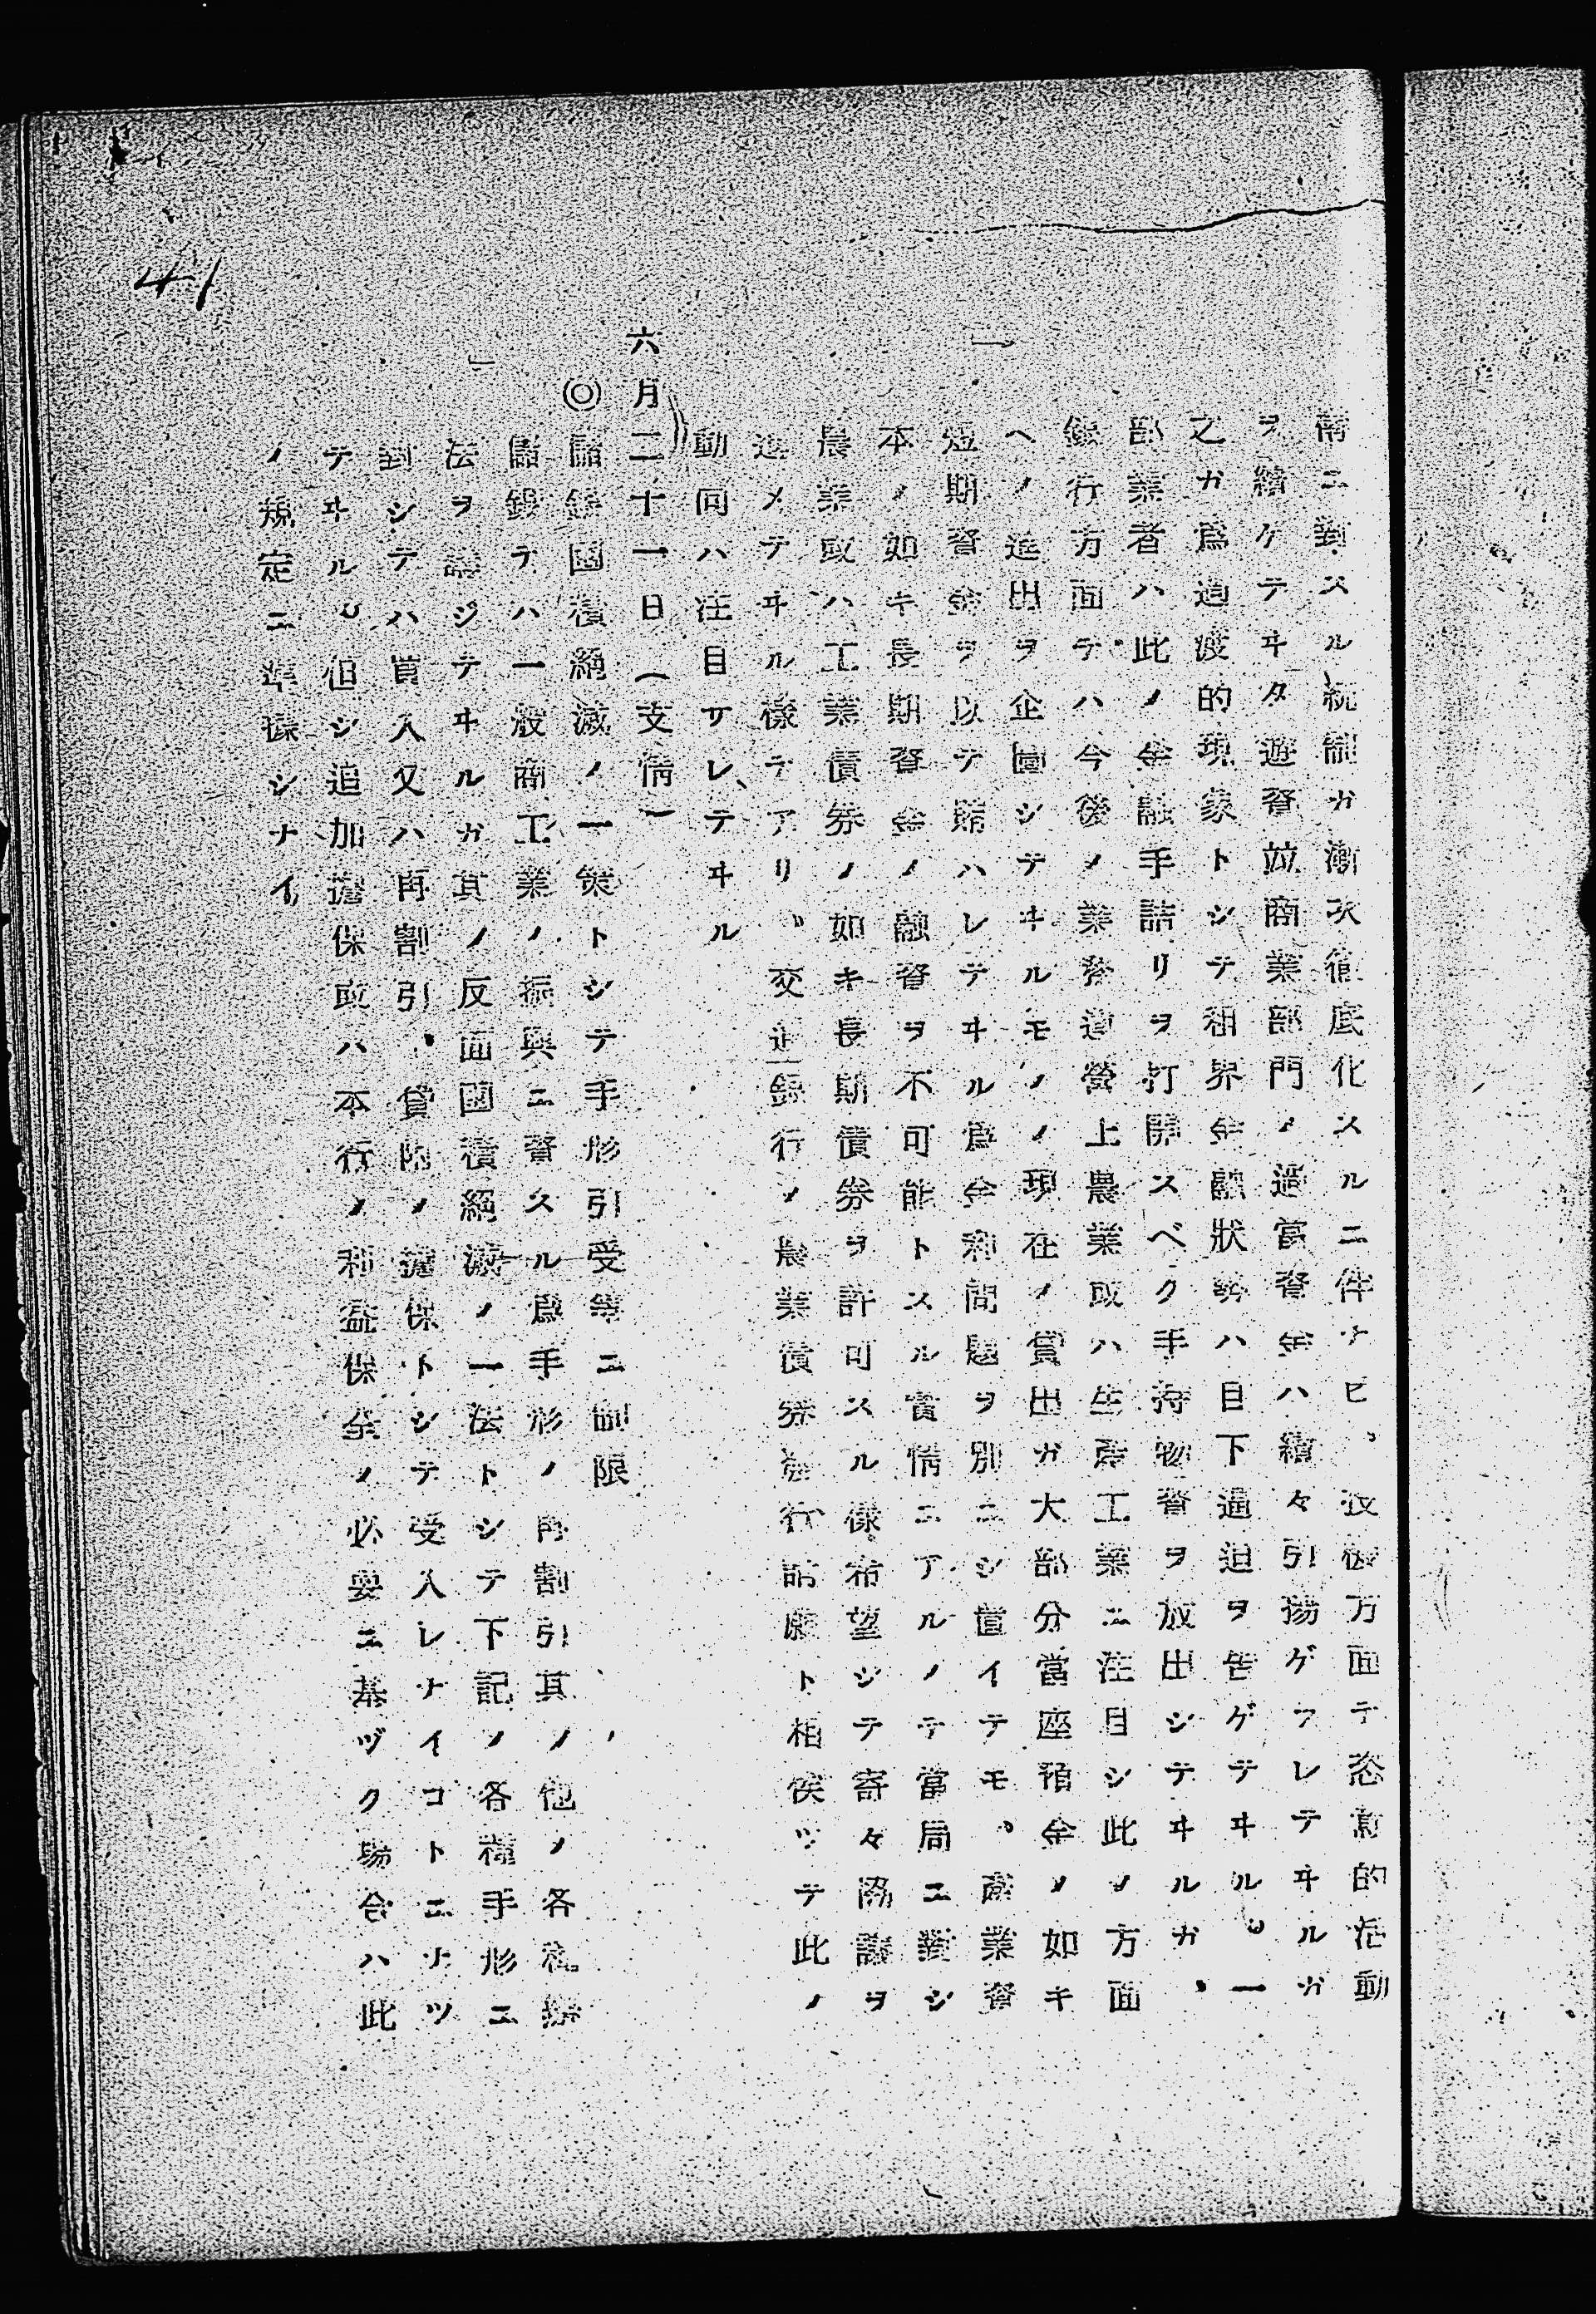 ニ對スル統制ガ漸次徹底化スルニ伴ナヒ、投機方面デ恣意的活動
ヲ續ケテヰタ遊資竝商業部門ノ過當資金ハ續々引揚ゲラレテヰルガ
之ガ爲過渡的現象トシテ租界金融狀勢ハ目下逼迫ヲ告ゲテヰル。一
部業者ハ此ノ金融手詰リヲ打開スベク手持物資ヲ放出シテヰルガ、
銀行方面デハ今後ノ業務運營上農業或ハ生產工業ニ注目シ此ノ方面
ヘノ進出ヲ企圖シテヰルモノノ現在ノ貸出ガ大部分當座預金ノ如キ
短期資金ヲ以テ賄ハレテヰル爲金利問題ヲ別ニシ置イテモ、產業資
本ノ如キ長期資金ノ融資ヲ不可能トスル實情ニアルノデ當局ニ對シ
農業或ハ工業債券ノ如キ長期債券ヲ許可スル樣希望シテ寄々協議ヲ
進メテヰル樣デアリ、交通銀行ノ農業債券發行請願ト相俟ツテ此ノ
動向ハ注目サレテヰル
六月二十一日(支情)
◎儲銀國積絕滅ノ一策トシテ手形引受等ニ制限
儲銀デハ一般商工業ノ振興ニ資スル爲手形ノ再割引其ノ他ノ各種辦
法ヲ講ジテヰルガ其ノ反面國積絕滅ノ一法トシテ下記ノ各種手形ニ
對シテハ買入又ハ再割引、貸附ノ擔保トシテ受入レナイコトニナツ
テヰル。但シ追加擔保或ハ本行ノ利益保全ノ必要ニ基ヅク場合ハ此
ノ規定ニ準據シナイ
41